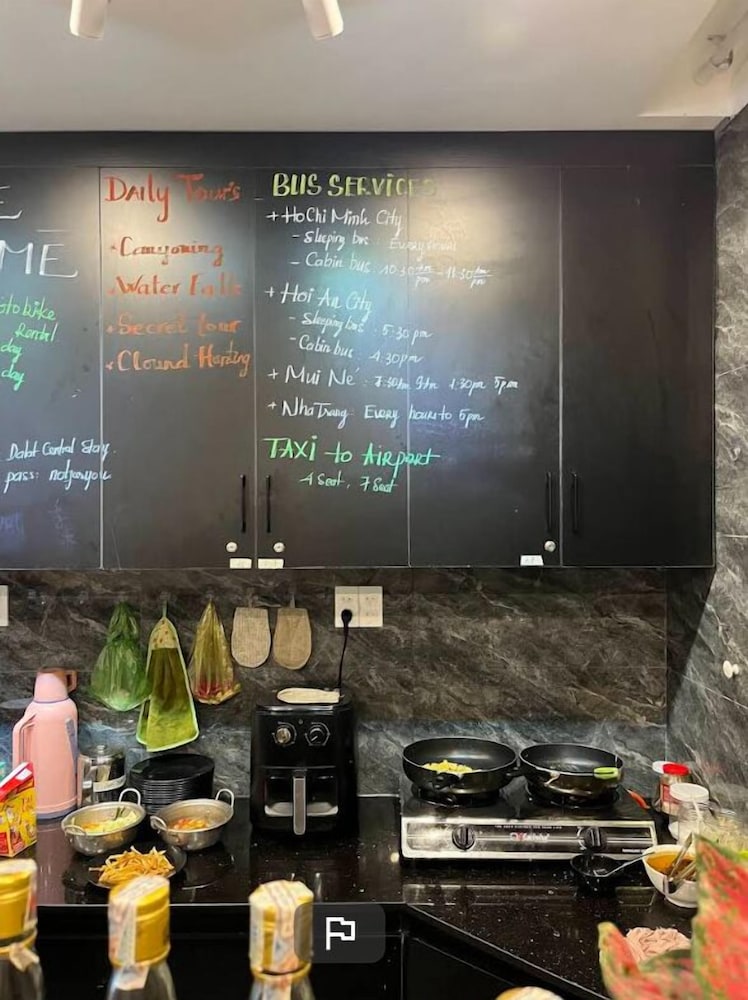 E
ME
Daily Tour's
• Canyoning
• Water Falls
• Secret tour
• Clound Hunting
BUS SERVICES
+ Ho Chi Minh City
- Sleeping bus:
- Cabin bus: 10:30 am/pm - 11:30 am/pm
+ Hoi An City
- Sleeping bus: 5:30 pm
- Cabin bus: 4.30pm
+ Mui Né: 7:30am 9am 1:30pm 5pm
+ Nha Trang: Every hours to 5pm
TAXI to Airport
4 Seat, 7 Seat
tobike
Rental
day
day
Dalat Central Stay
pass: notforyou